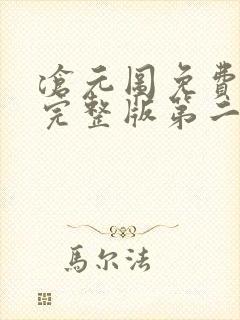 滄元圖免費
完整版第二
馬尔法